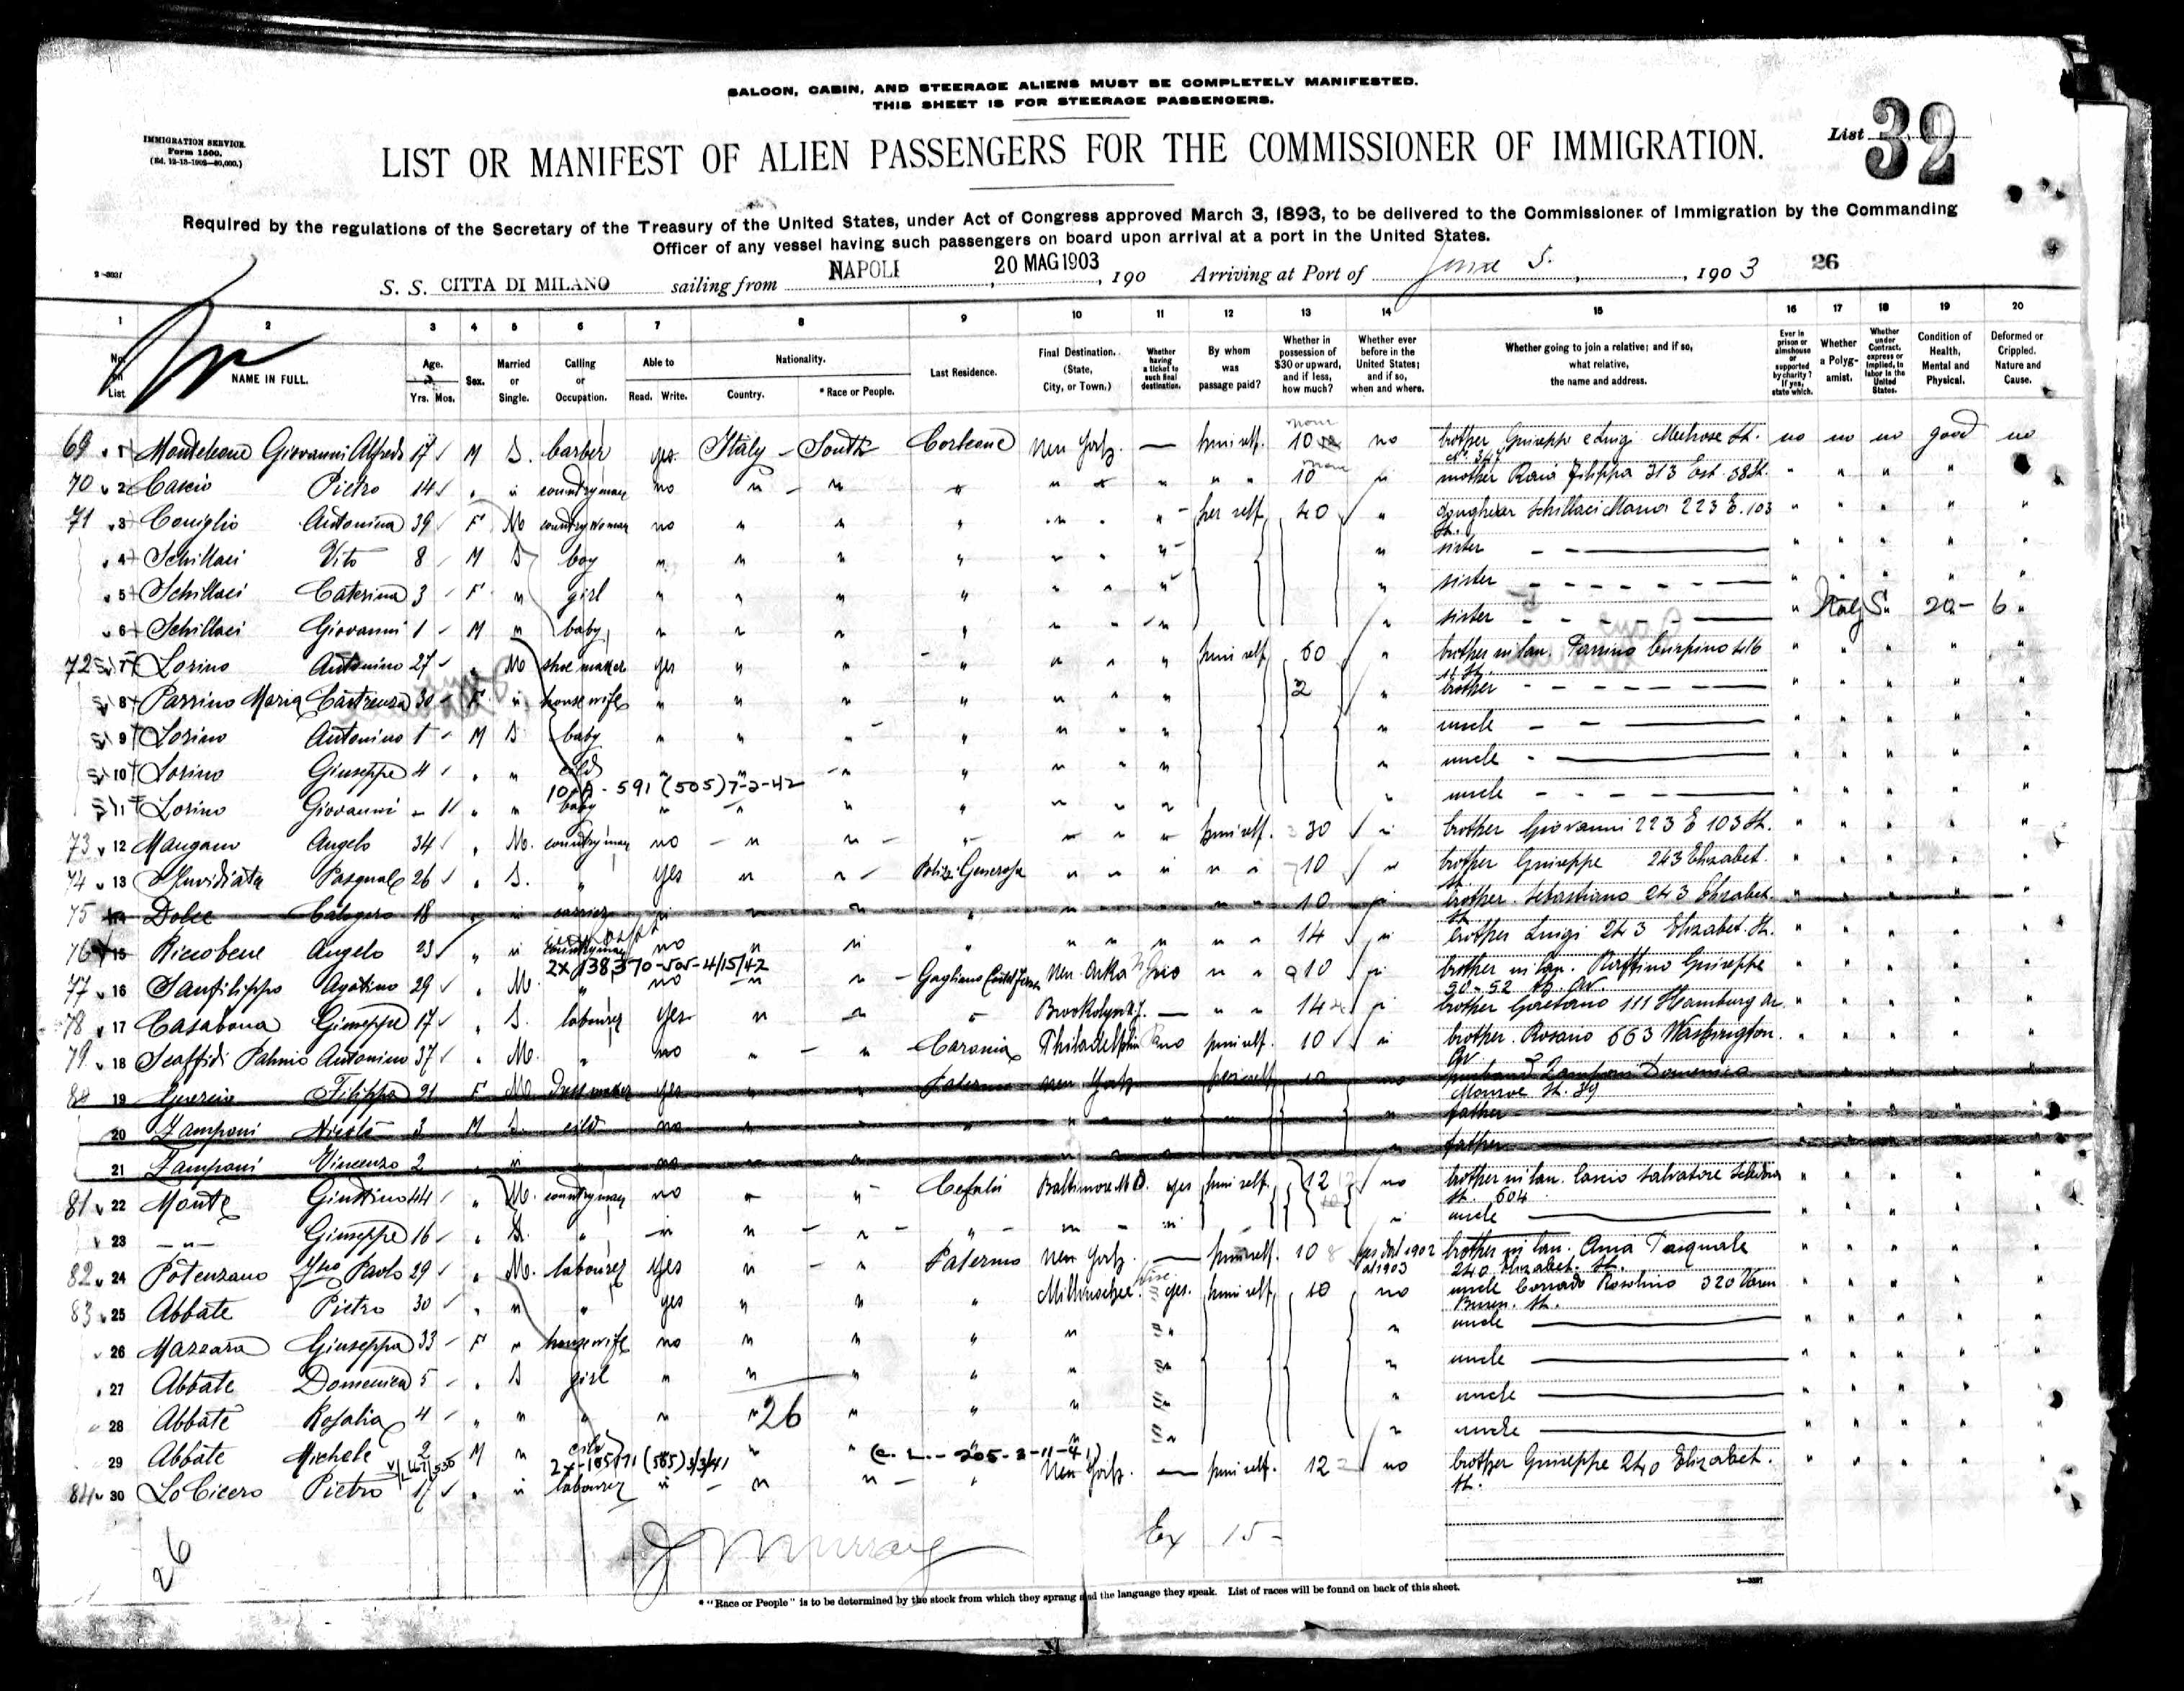 SALOON, CABIN, AND STEERAGE ALIENS MUST BE COMPLETELY MANIFESTED.
THIS SHEET IS FOR STEERAGE PASSENGERS.
IMMIGRATION SERVICE
Form 1500.
(Ed. 12-13-1902—50,000.)
LIST OR MANIFEST OF ALIEN PASSENGERS FOR THE COMMISSIONER OF IMMIGRATION.
List 32
Required by the regulations of the Secretary of the Treasury of the United States, under Act of Congress approved March 3, 1893, to be delivered to the Commissioner of Immigration by the Commanding
Officer of any vessel having such passengers on board upon arrival at a port in the United States.
S. S. CITTA DI MILANO sailing from NAPOLI, 20 MAG 1903, 190 Arriving at Port of June 5., 1903 26
1 2 3 4 5 6 7 8 9 10 11 12 13 14 15 16 17 18 19 20
No. on List. NAME IN FULL. Age. Yrs. Mos. Sex. Married or Single. Calling or Occupation. Able to Read. Write. Nationality. Country. *Race or People. Last Residence. Final Destination. (State, City, or Town.) Whether having a ticket to such final destination. By whom was passage paid? Whether in possession of $30 or upward, and if less, how much? Whether ever before in the United States; and if so, when and where. Whether going to join a relative; and if so, what relative, the name and address. Ever in prison or almshouse or supported by charity? If yes, state which. Whether a Polygamist. Whether under Contract, express or implied, to labor in the United States. Condition of Health, Mental and Physical. Deformed or Crippled. Nature and Cause.
69 1 Monteleone Giovanni Alfredo 17 M S. barber yes Italy South Corleone New York — himself. 10 no brother Giuseppe e Luigi Melrose St. No. 347 no no no good no
70 2 Cascio Pietro 14 " " countryman no " " " " " " " 10 " mother Filippa 313 Est. 38 St. " " " " "
71 3 Coniglio Antonina 39 F M countrywoman no " " " " " her self 40 " daugheer Schillaci Maria 223 E. 103 St. " " " " "
4 Schillaci Vito 8 M S boy " " " " " " " sister " " " " "
5 Schillaci Caterina 3 F " girl " " " " " " " sister " " " " "
6 Schillaci Giovanni 1 M " baby " " " " " " " sister " " "
72 7 Losino Antonino 27 " M shoe maker yes " " " " " himself 60 " brother in law. Parrino " " " " "
8 Parrino Maria Castrenza 30 F " housewife " " " " " " 2 " brother " " " " "
9 Losino Antonino 1 M S baby " " " " " " " uncle " " " " "
10 Losino Giuseppe 4 " " cild " " " " " " " uncle " " " " "
591 (505) 7-2-42
11 Losino Giovanni - 11 " " baby " " " " " " " uncle " " " " "
73 12 Mangano Angelo 34 " M. countryman no " " " " " himself. 30 " brother Giovanni 223 E 103 St. " " " " "
74 13 Invidiata Pasquale 26 " S. " yes " " Polizzi Generosa " " " " 10 " brother Giuseppe 243 Elizabet. St " " " " "
75 14 Dolce Calogero 18 " " " " " " " " " " 10 " brother. Sebastiano 243 Elizabet. St " " " " "
76 15 Riccobene Angelo 23 " " countryman no " " " " " " " 14 " brother Luigi 243 Elizabet. St. " " " " "
2X 138370-505-4/15/42
77 16 Sanfilippo Agatino 29 " M. " no " " Gagliano no " " 10 " brother in law. Giuseppe " " " " "
78 17 Casabona Giuseppe 17 " S. labourer yes " " " — " " 14 " brother Gaetano 111 Hamburg Av " " " " "
79 18 Scaffidi Antonino 37 " M. " no " " Caronia Philadelphia no himself. 10 " brother. Rosario 663 Washington. Av " " " " "
80 19 Filippa 21 F M Dress maker yes " " Palermo New York her self 10 no husband Zamponi Domenico Monroe St. 39
20 Zamponi Nicolò 3 M S. cild no " " " " " father " " " " "
21 Zamponi Vincenzo 2 " " no " " " " " father " " " " "
81 22 Monte Giustino 44 " M. countryman no " " Cefalù Baltimore M.D. yes himself. 12 no brother in law. Cascio Salvatore St. 604 " " " " "
23 — " — Giuseppe 16 " S. " " " " " " " " uncle " " " " "
82 24 Potenzano Paolo 29 " M. labourer yes " " Palermo New York. — himself. 10 brother in law. Pasquale 240 Elizabet. St. " " " " "
83 25 Abbate Pietro 30 " " " yes " " " yes. himself 10 no uncle Corrado Rosolino 320 Buren. St. " " " " "
26 Mazzara Giuseppa 33 F " housewife no " " " " " " uncle " " " " "
27 Abbate Domenica 5 " S girl " " " " " " " uncle " " " " "
28 Abbate Rosalia 4 " " " " " " " " " " uncle " " " " "
26
29 Abbate Michele 2 M " cild " " " " " " uncle " " " " "
84 30 Lo Cicero Pietro 17 " " labourer " " " " New York. — himself. 12 no brother Giuseppe 240 Elizabet. St. " " " " "
26
J Murray
Ex 15-
* "Race or People" is to be determined by the stock from which they sprang and the language they speak. List of races will be found on back of this sheet.